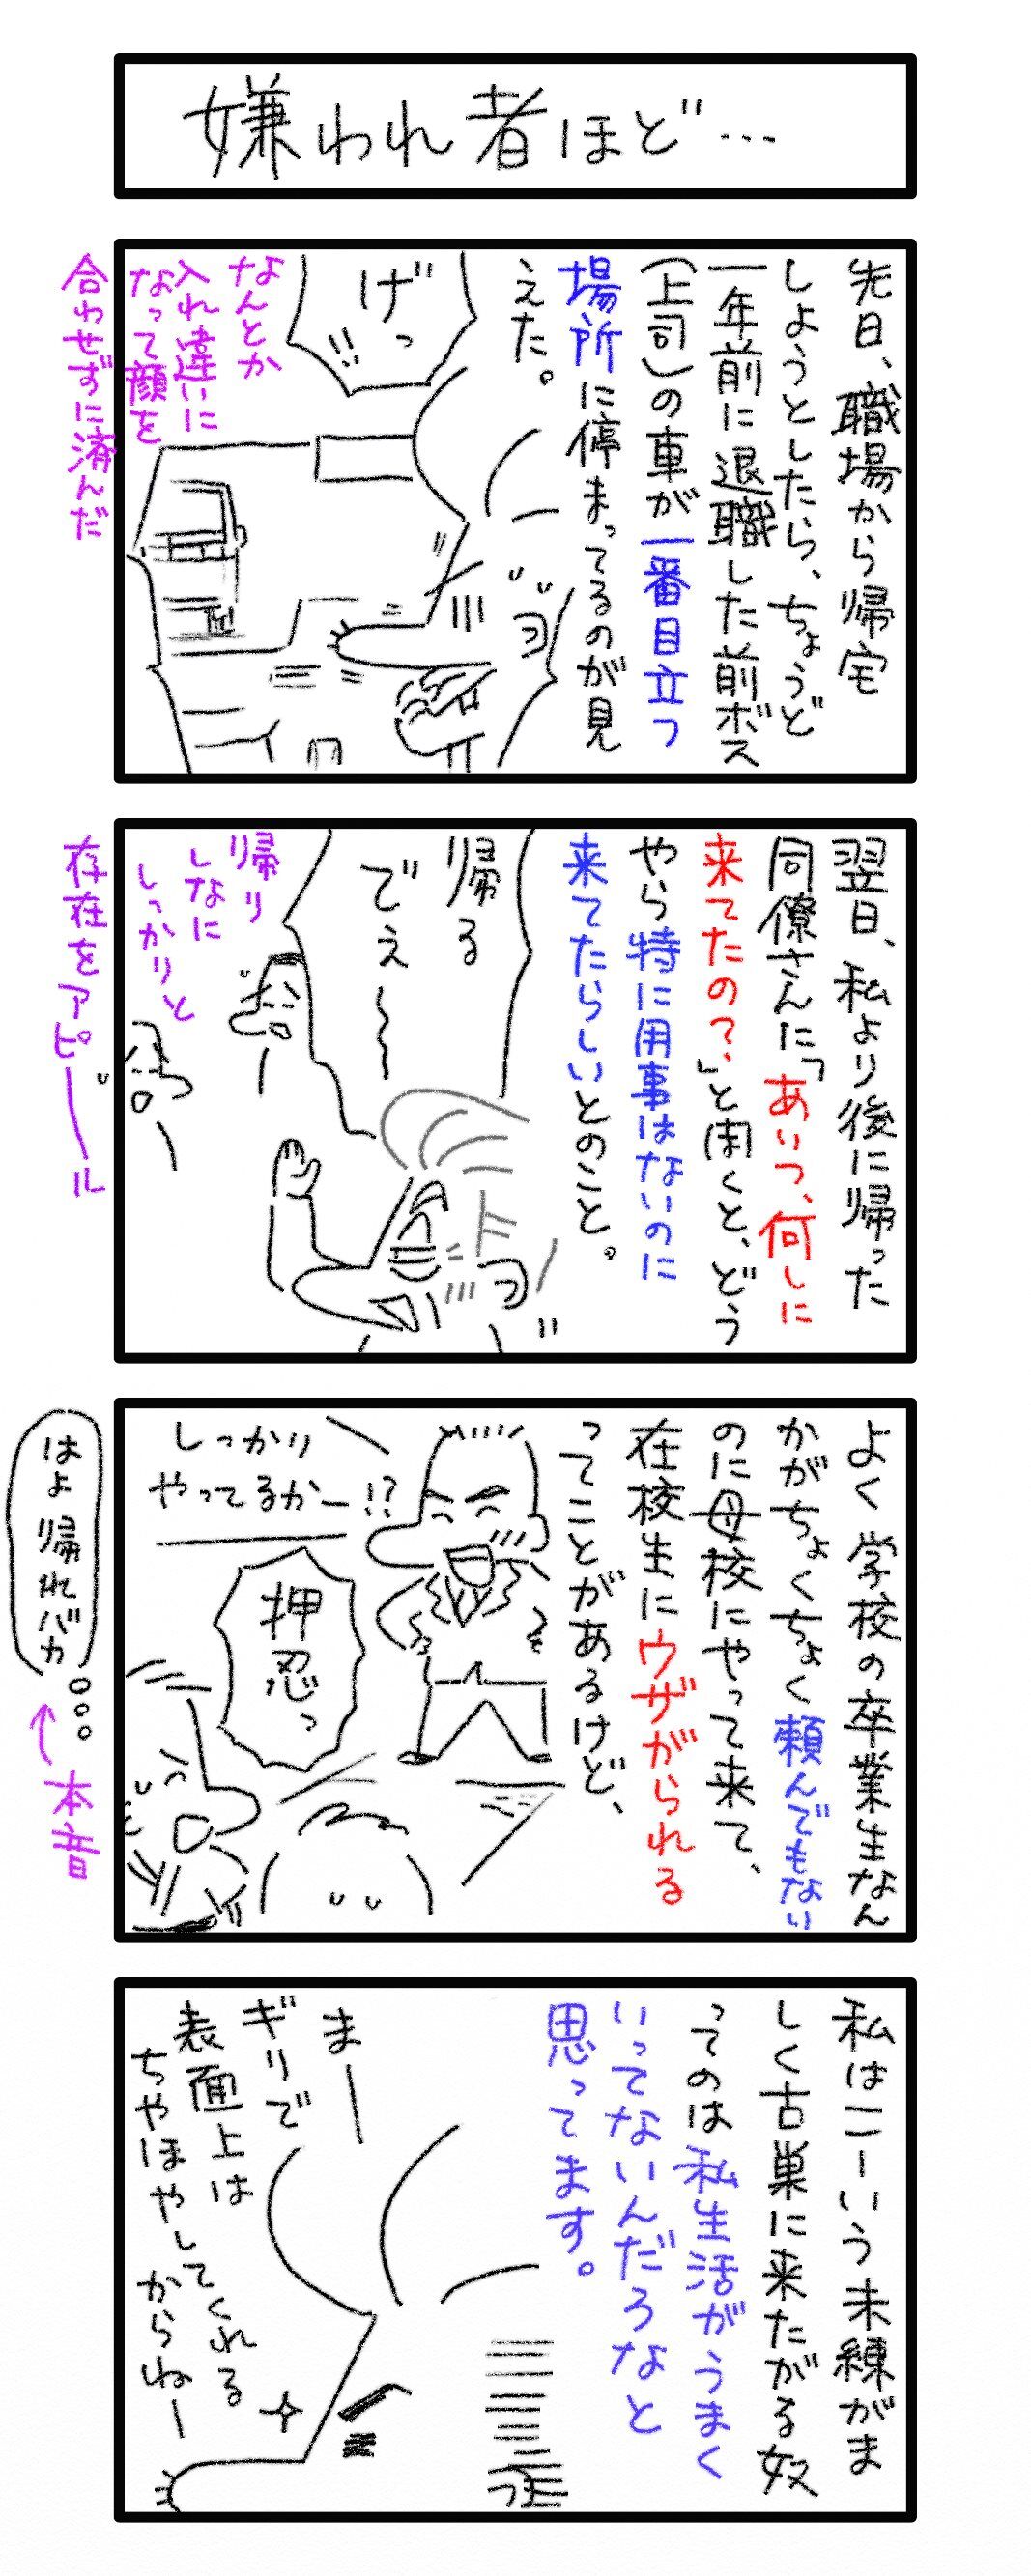 嫌われ者ほど…
先日、職場から帰宅
しようとしたら、ちょうど
一年前に退職した前ボス
(上司)の車が一番目立つ
場所に停まってるのが見
えた。
げっ
!!
なんとか
入れ違いに
なって顔を
合わせずに済んだ
翌日、私より後に帰った
同僚さんに「あいつ、何しに
来てたの?」と聞くと、どう
やら特に用事はないのに
来てたらしいとのこと。
帰る
でぇ〜
帰り
しなに
しっかりと
存在をアピール
よく学校の卒業生なん
かがちょくちょく頼んでもない
のに母校にやって来て、
在校生にウザがられる
ってことがあるけど、
しっかり
やってるかー!?
押忍っ
はよ帰れバカ
↑本音
私はこーいう未練がま
しく古巣に来たがる奴
ってのは私生活がうまく
いってないんだろなと
思ってます。
まー
ギリで
表面上は
ちやほやしてくれる
からねー